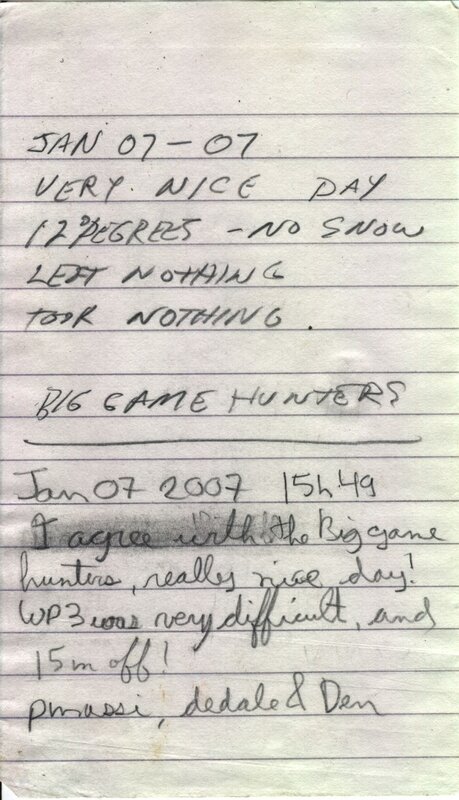 JAN 07-07
VERY NICE DAY
12° DEGREES - NO SNOW
LEFT NOTHING
TOOK NOTHING.
BIG GAME HUNTERS
Jan 07 2007 15h49
I agree with the Big game
hunters, really nice day!
WP3 was very difficult, and
15m off!
pmassi, dedale & Den